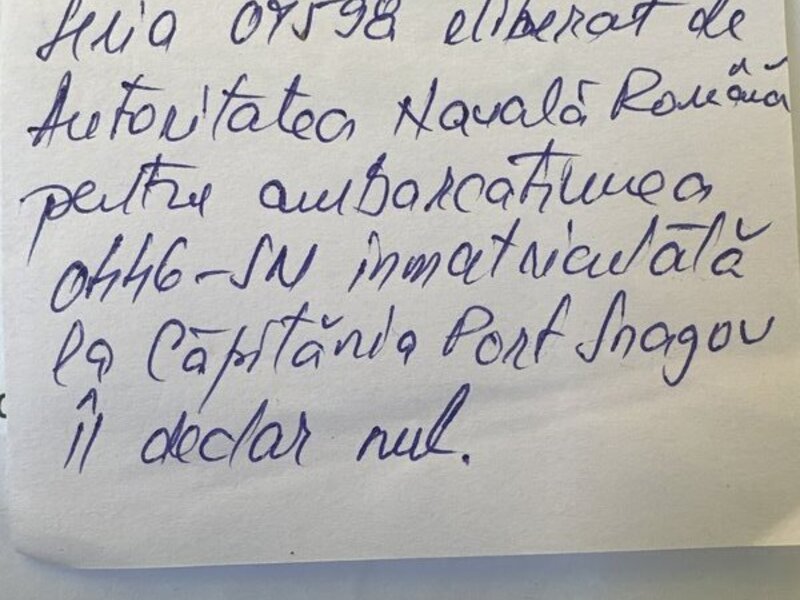 Seria 04598 eliberat de
Autoritatea Navală Română
pentru ambarcațiunea
0446-SN inmatriculată
la Căpitănia Port Snagov
îl declar nul.